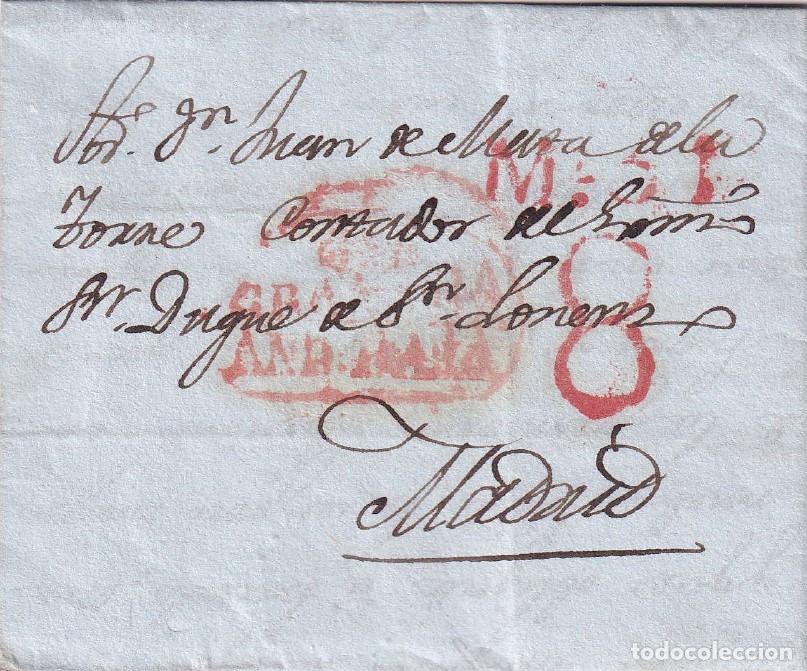 Sor. Dn. Juan de Mata de la
M
Torre Contador del Exmo
Sr. Duque de Sn. Lorenzo
8
GRANADA
AND. BAJA
Madrid
todocoleccion